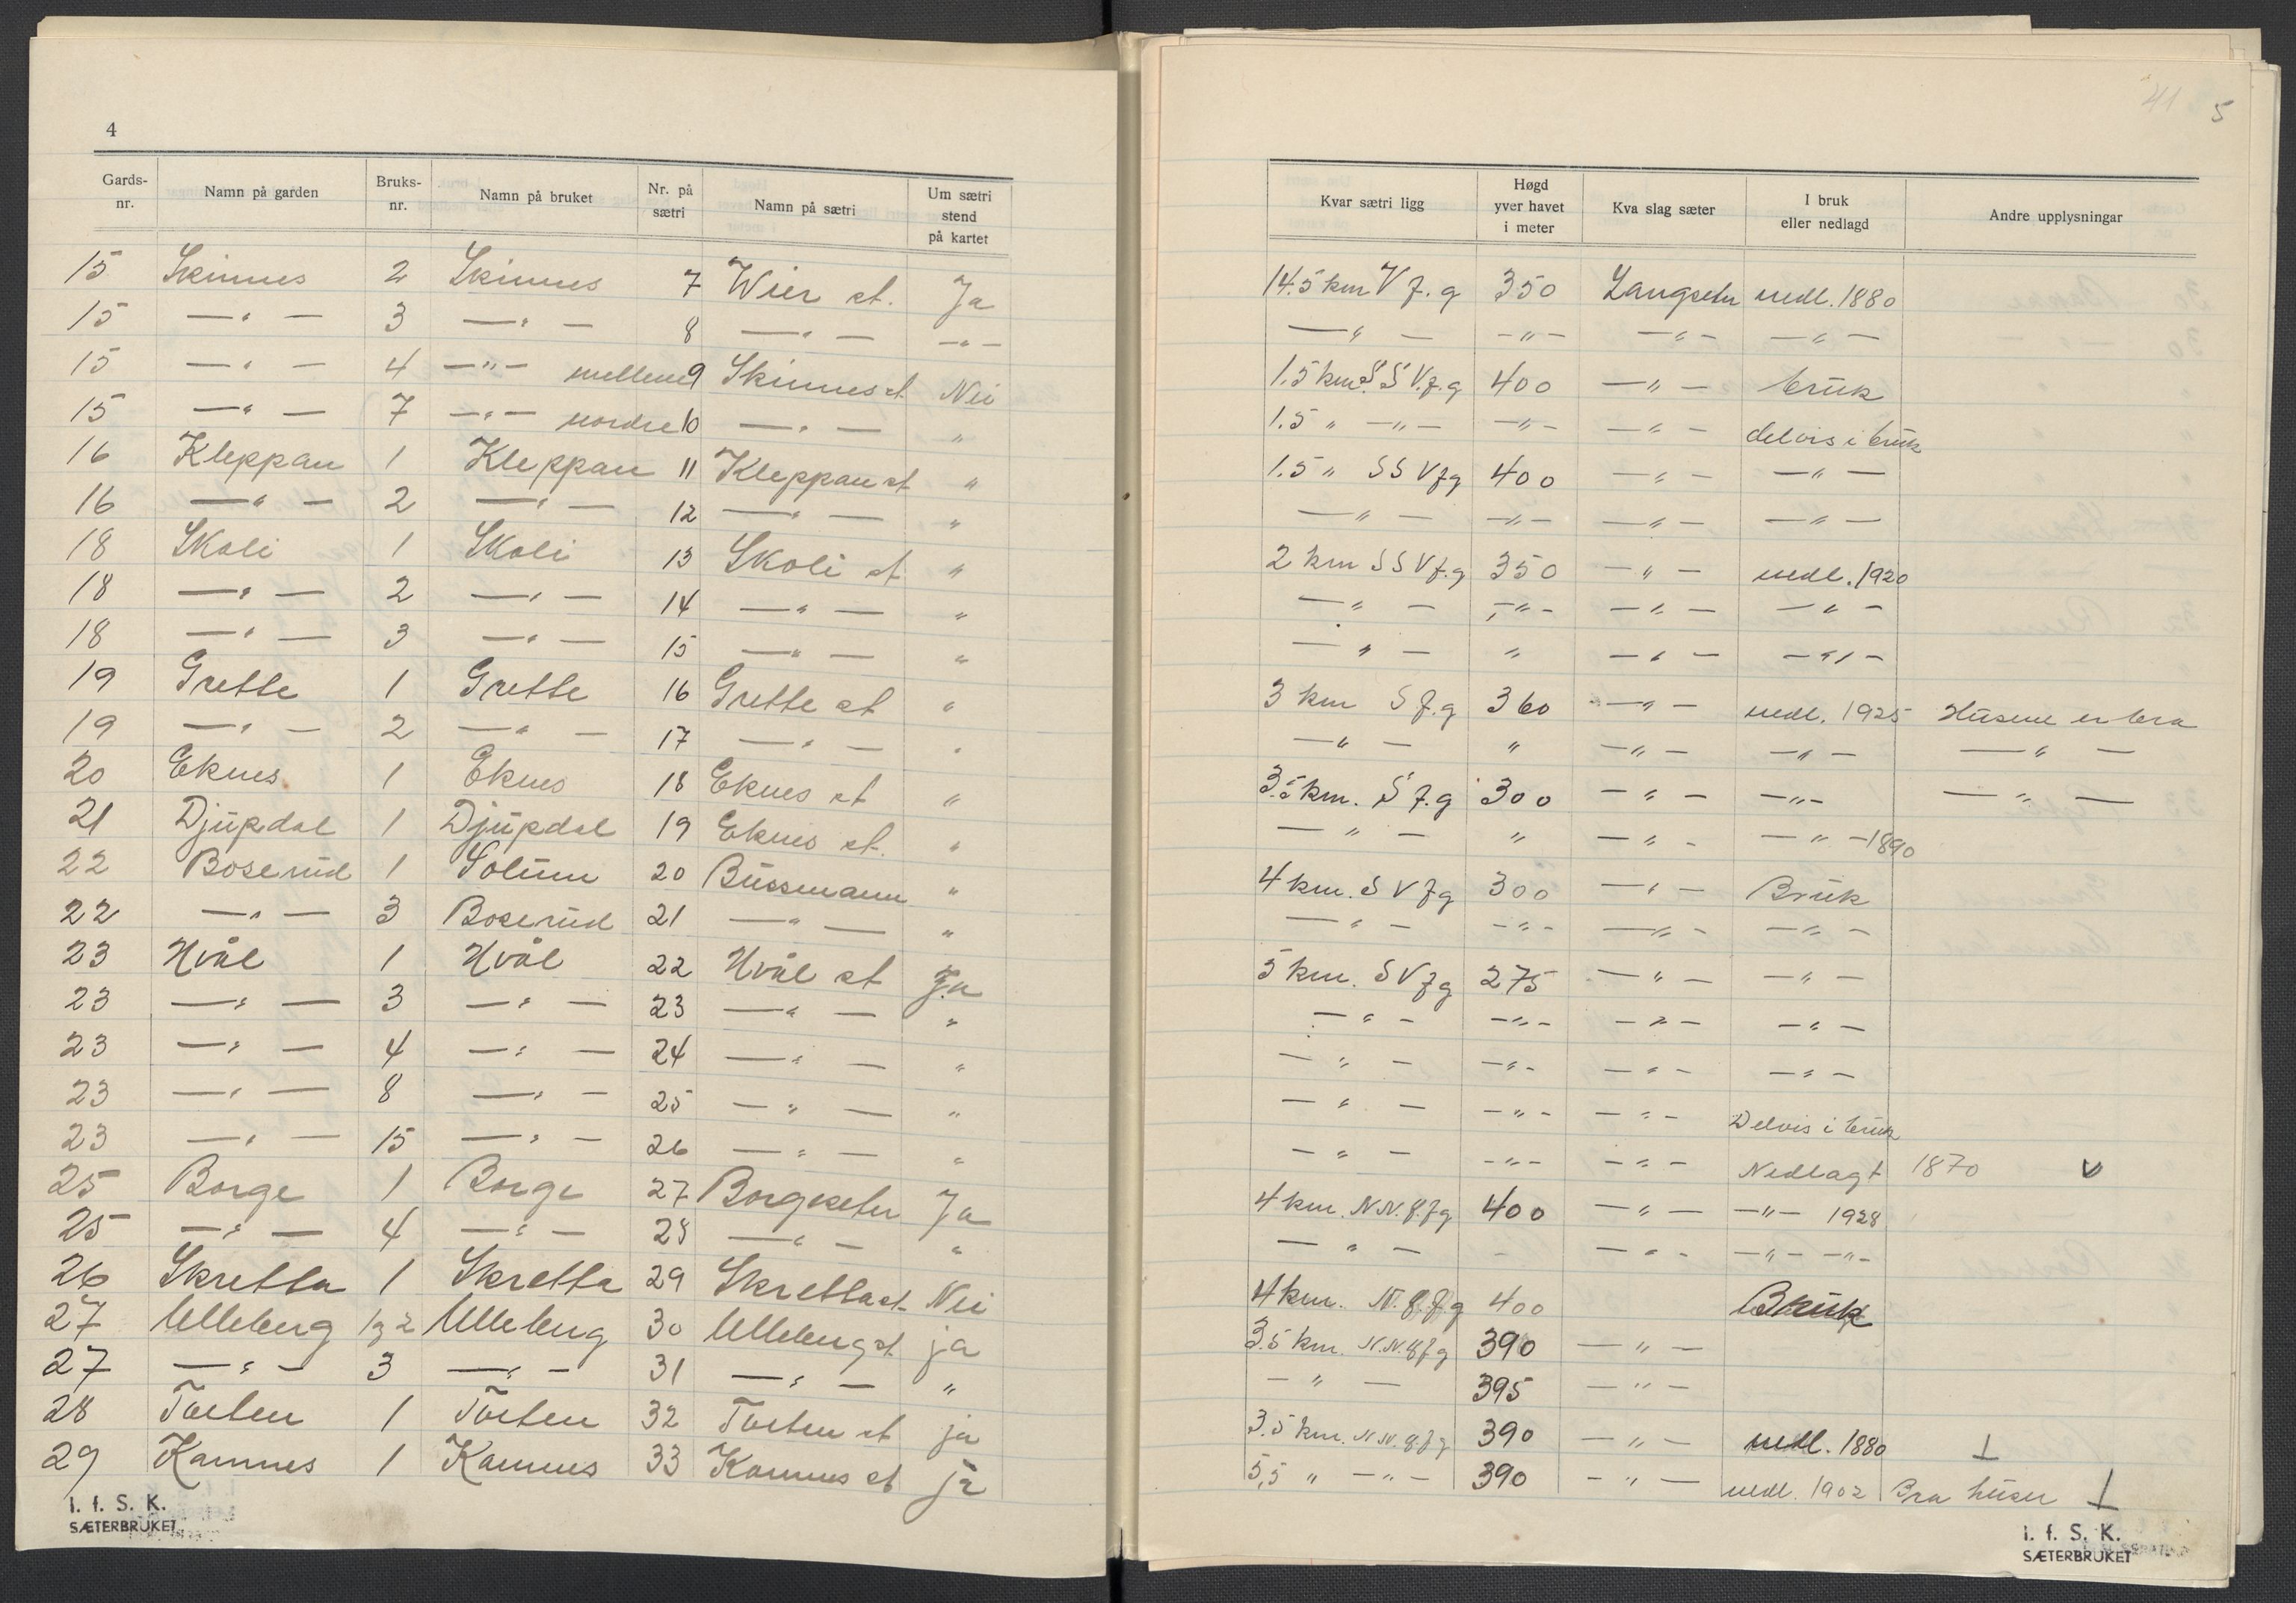 4
Gards-nr. Namn på garden Bruks-nr. Namn på bruket Nr. på sætri Namn på sætri Um sætri stend på kartet
15 Skinnes 2 Skinnes 7 Wier st. Ja
15 — " — 3 — " — 8 — " — — " —
15 — " — 4 — " — mellem 9 Skinnes st Nei
15 — " — 7 — " — nordre 10 — " — "
16 Kleppan 1 Kleppan 11 Kleppan st "
16 — " — 2 — " — 12 — " — "
18 Skoli 1 Skoli 13 Skoli st "
18 — " — 2 — " — 14 — " — "
18 — " — 3 — " — 15 — " — "
19 Grette 1 Grette 16 Grette st "
19 — " — 2 — " — 17 — " — "
20 Eknes 1 Eknes 18 Eknes st "
21 Djupdal 1 Djupdal 19 Eknes st. "
22 Boserud 1 Solum 20 Bussmann "
22 — " — 3 Boserud 21 — " — "
23 Hvål 1 Hvål 22 Hvål st Ja
23 — " — 3 — " — 23 — " — "
23 — " — 4 — " — 24 — " — "
23 — " — 8 — " — 25 — " — "
23 — " — 15 — " — 26 — " — "
25 Borge 1 Borge 27 Borgseter Ja
25 — " — 4 — " — 28 — " — "
26 Skretta 1 Skretta 29 Skretta st Nei
27 Ulleberg 1 2 Ulleberg 30 Ulleberg st ja
27 — " — 3 — " — 31 — " — "
28 Torten 1 Torten 32 Torten st ja
29 Kamnes 1 Kamnes 33 Kamnes st ja
I. f. S. K.
SÆTERBRUKET
41 5
Kvar sætri ligg Høgd yver havet i meter Kva slag sæter I bruk eller nedlagd Andre upplysningar
14.5 km V f. g 350 Langseter nedl. 1880
— " — — " — — " — — " —
1.5 km. S S V. f. g 400 — " — bruk
1.5 " — " — — " — — " — delvis i bruk
1.5 " S S V f g 400 — " — — " —
— " — — " — — " — — " —
2 km S S V f. g 350 — " — nedl. 1920
— " — — " — — " — — " —
— " — " — " — — " —
3 km S f. g 360 — " — nedl. 1925 Husene er bra
— " — " — " — — " — — " —
3.5 km. S f. g 300 — " — — " — — " —
— " — " — " — — " — 1890
4 km. S V f g 300 — " — Bruk
— " — — " — — " — — " —
5 km. S V f g 275 — " — — " —
— " — — " — — " — — " —
— " — — " — — " — — " —
— " — — " — — " — Delvis i bruk
— " — — " — — " — Nedlagt 1870 v
4 km. N N. Ø. f g 400 — " — — " — 1928
— " — - — " — — " — — " —
4 km. N. Ø. f. g 400 Bruk
3.5 km. N. N. Ø f g 390 — " —
— " — 395 — " —
3.5 km. N N. Ø. f g 390 — " — nedl. 1880 ⊥
5,5 " — " — 390 — " — nedl. 1902 Bra huser ⊥
I. f. S. K.
SÆTERBRUKET